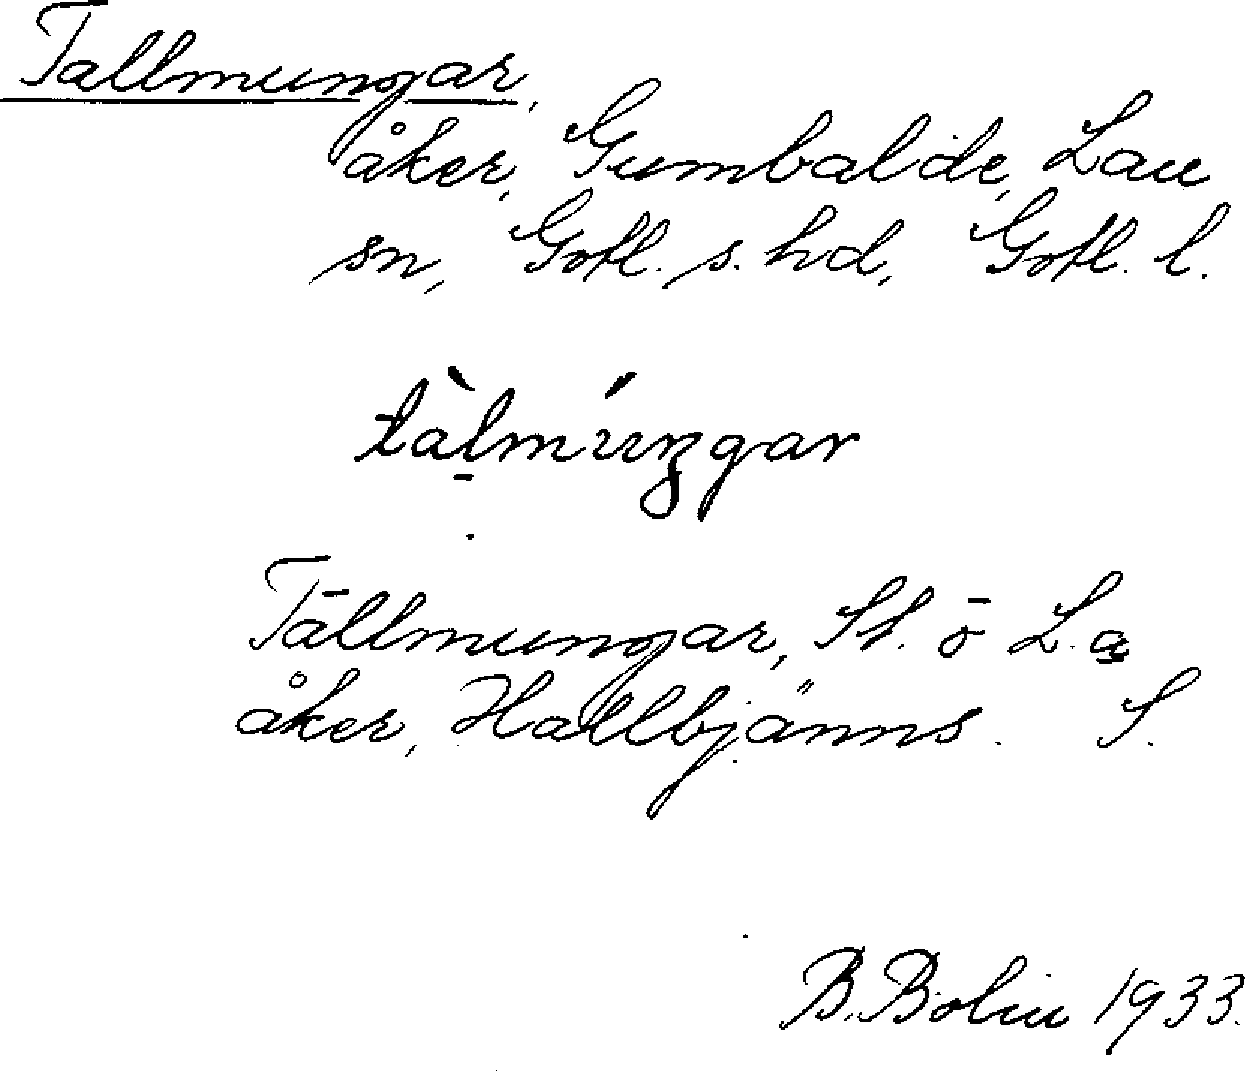 Tallmungar,
åker, Gumbalde, Lau
sn, Gotl. s. hd, Gotl. l.
tàl̠múŋgar
Tāllmungar, St. ō L. a
åker, Hallbjänns. S.
B. Bolin 1933.